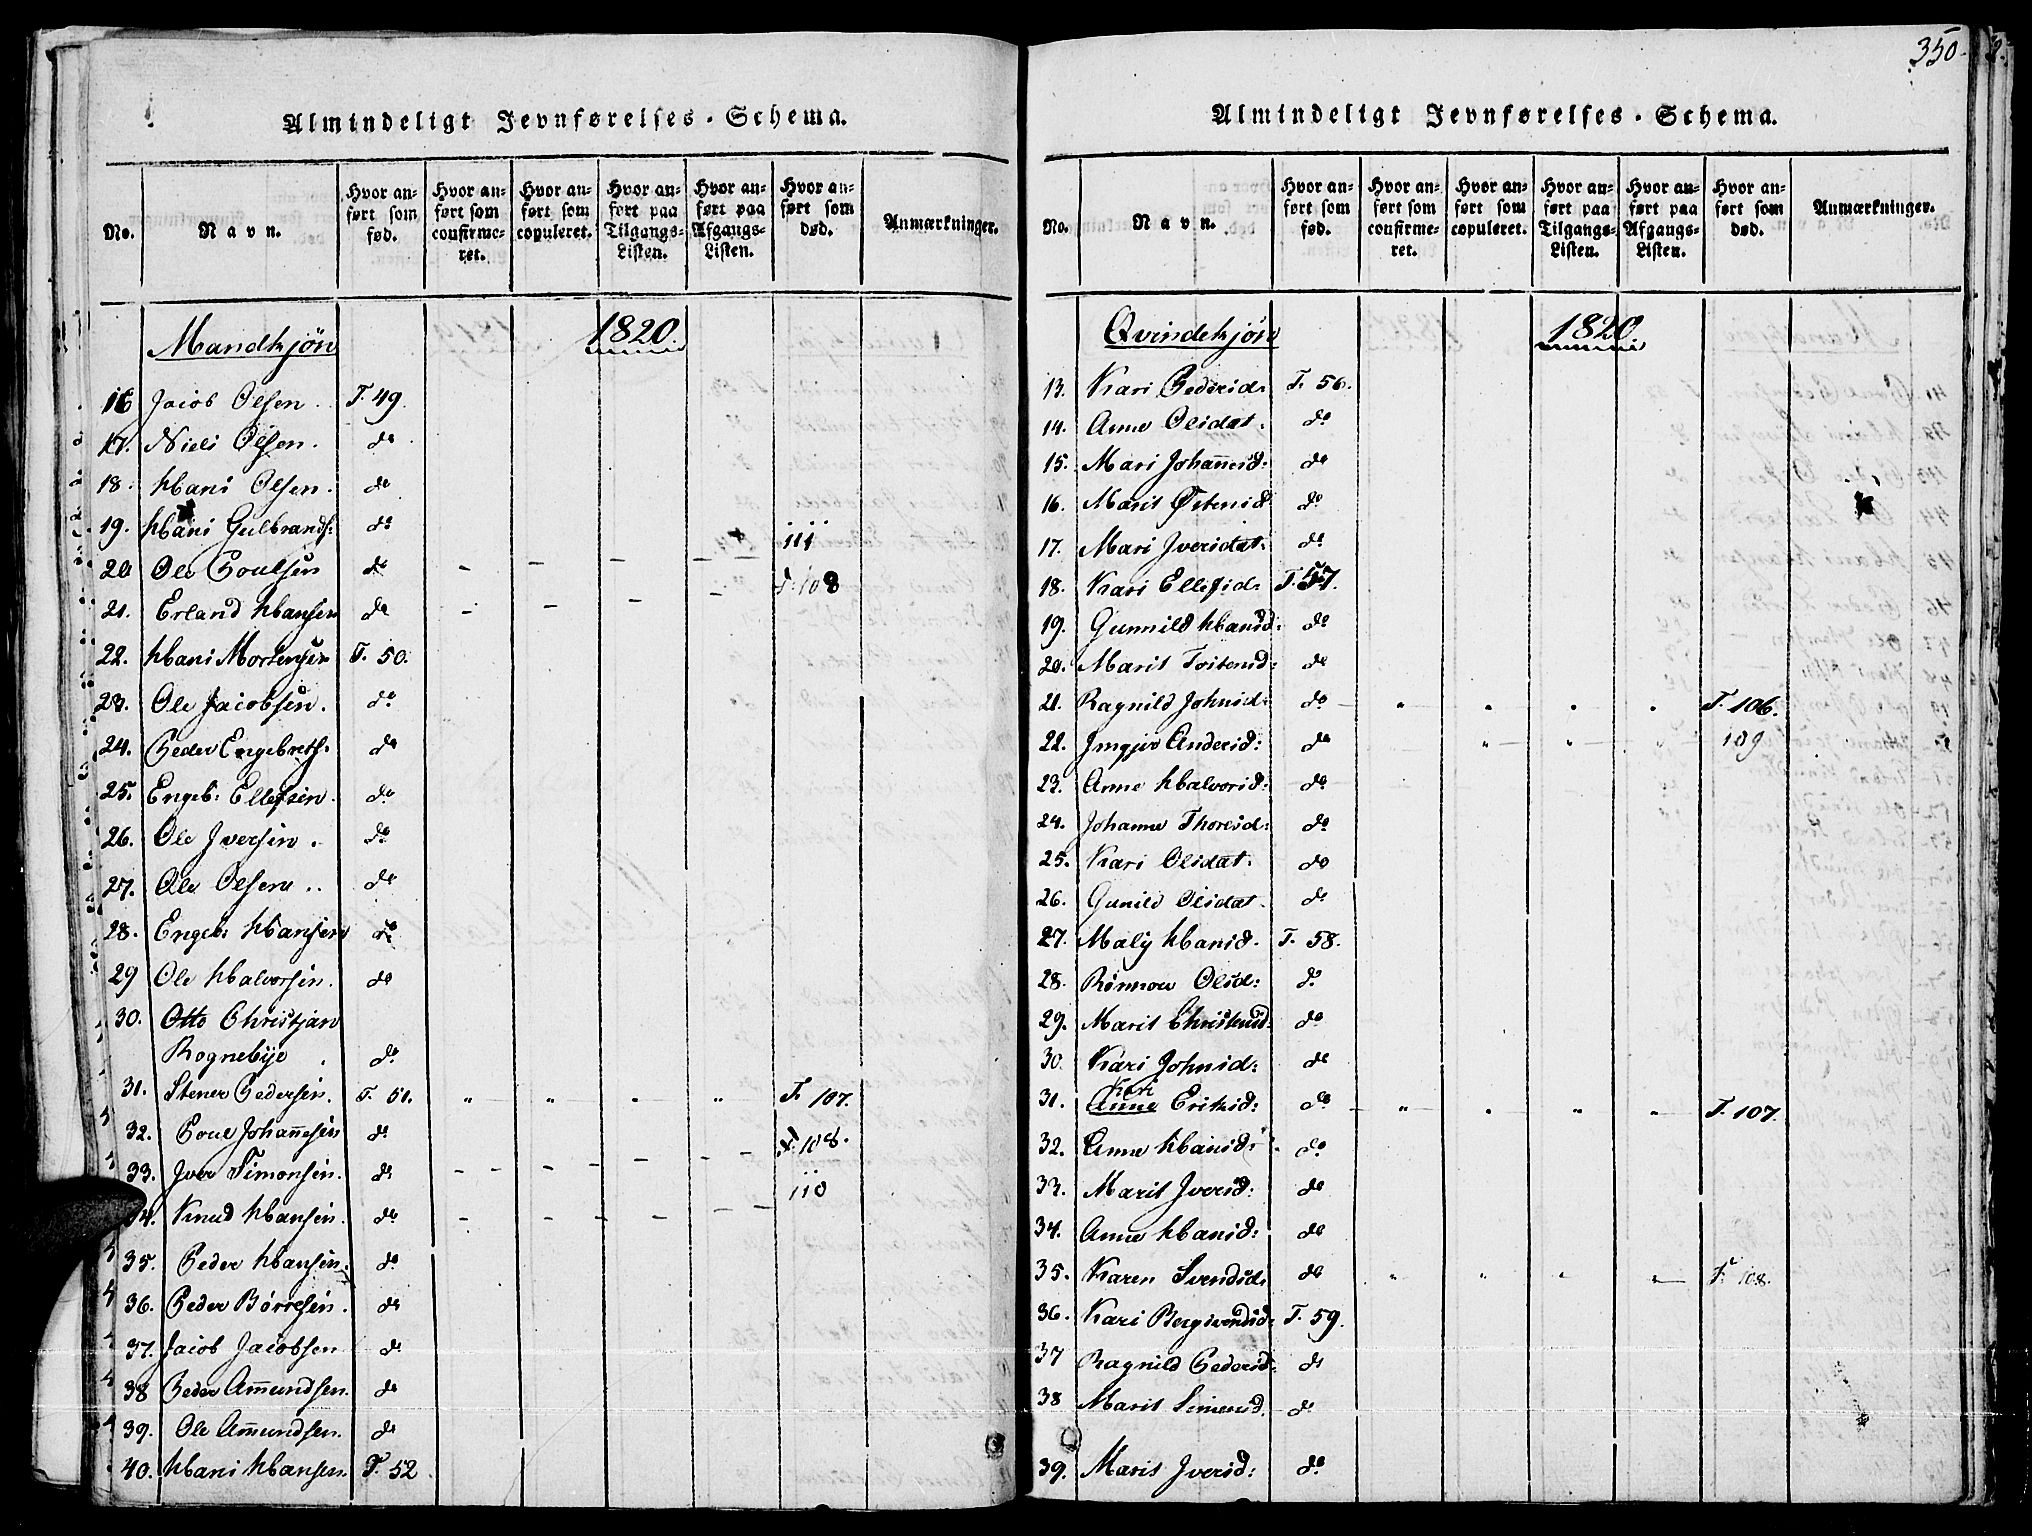 350.
Almindeligt Jevnførelses-Schema.
No.
Navn.
Hvor anført som fød.
Hvor anført som confirmeret.
Hvor anført som copuleret.
Hvor anført paa Tilgangs-Listen.
Hvor anført paa Afgangs-Listen.
Hvor anført som død.
Anmærkninger.
Mandkjön 1820.
16 Jacob Olsen. F. 49.
17. Niels Olsen. do
18. Hans Olsen. do
19. Hans Gulbrands: do 111
20 Ole Poulsen do F. 108
21. Erland Hansen do
22. Hans Mortensen F. 50.
23. Ole Jacobsen. do
24. Peder Engebrets: do
25. Engeb: Ellefsen. do
26. Ole Iversen. do
27. Ole Olsen.. do
28. Engeb: Hansen do
29 Ole Halvorsen. do
30. Otto Christjan
Rognebye. do
31. Stener Pedersen. F. 51. " " " " F. 107.
32. Poul Johañesen do F. 108.
33. Iver Simonsen. do 110
34. Knud Hansen. do
35. Peder Hansen. do
36. Peder Börresen. do
37. Jacob Jacobsen do
38 Peder Am̄undsen. do
39. Ole Am̄undsen. do
40. Hans Hansen. F. 52.
Almindeligt Jevnførelses-Schema.
No.
Navn.
Hvor anført som fød.
Hvor anført som confirmeret.
Hvor anført som copuleret.
Hvor anført paa Tilgangs-Listen.
Hvor anført paa Afgangs-Listen.
Hvor anført som død.
Anmærkninger.
Qvindekjön 1820
13. Kari Pedersd: F. 56.
14. Anne Olsdat. do
15. Mari Johañesd: do
16. Marit Østensd: do
17. Mari Iversdat: do
18. Kari Ellefsd: F. 57.
19. Gunnild Hansd: do
20. Marit Tostensd: do
21. Ragnild Johnsd: do " " " " F. 106.
22. Ingjer Andersd: do " " " 109
23. Anne Halvorsd: do
24. Johanne Thoresd: do
25. Kari Olsdat. do
26. Gunild Olsdat. do
27. Maly Hansd. F. 58.
28. Rönnow Olsd: do
29. Marit Christensd. do
30. Kari Johnsd: do
31. Kari Anne Eriksd: do " " " " F. 107.
32. Anne Hansd: do
33. Marit Iversd: do
34. Anne Hansd: do
35. Karen Svendsd: do " " " " F. 108.
36. Kari Bergsvendsd: F. 59.
37 Ragnild Pedersd: do
38 Marit Simensd. do
39. Marit Iversd: do